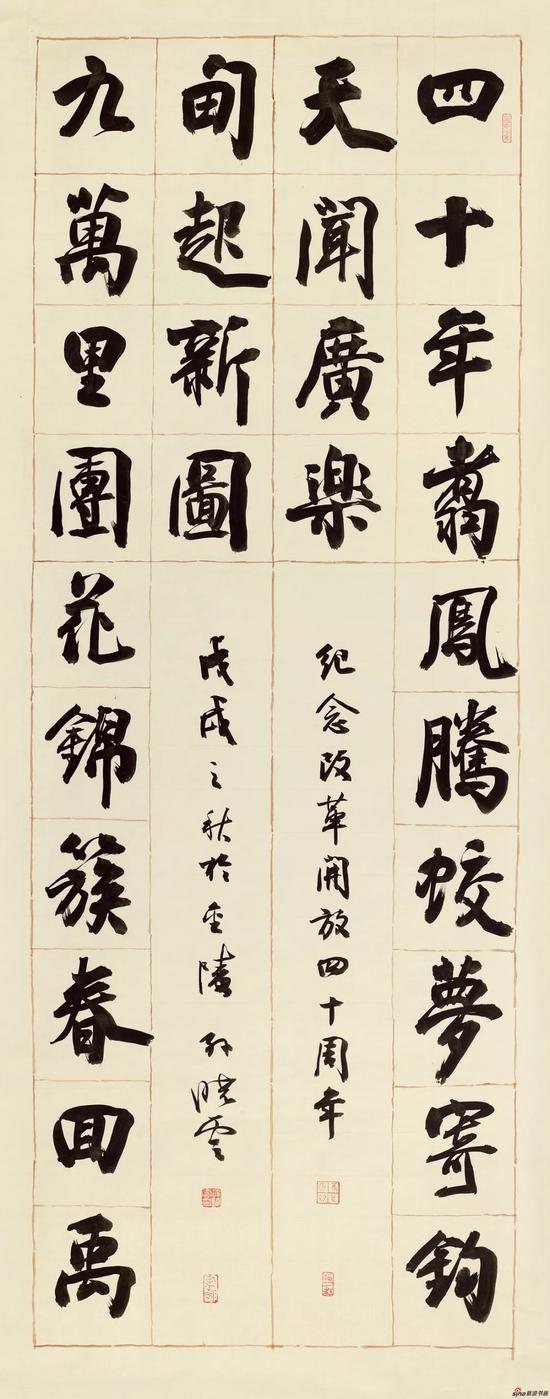 四十年翥鳳騰蛟夢寄鈞
天聞廣樂
九萬里團花錦簇春回禹
甸起新圖
紀念改革開放四十周年
戊戌之秋於金陵 孫曉雲
sina新浪书画